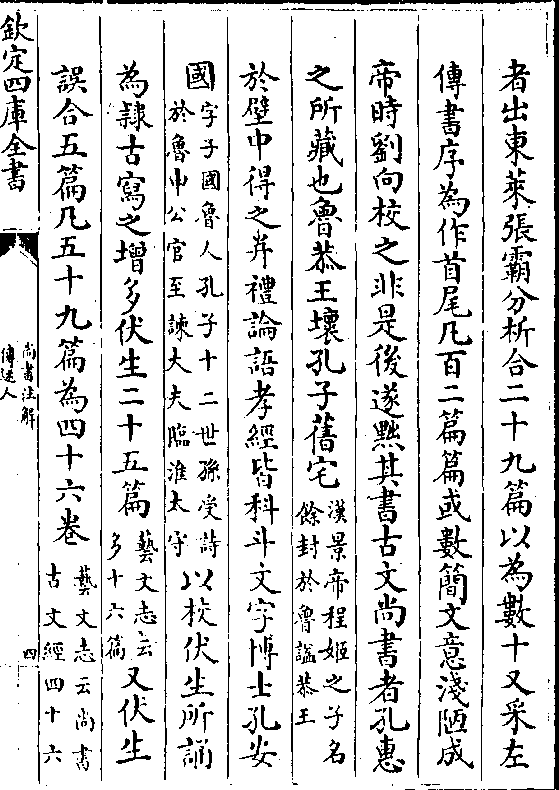 者出東萊張霸分析合二十九篇以為數十又采左
傳書序為作首尾凡百二篇篇或數簡文意淺陋成
帝時劉向校之非是後遂黜其書古文尚書者孔惠
之所藏也魯恭王壞孔子舊宅漢景帝程姬之子名餘封於魯諡恭王
於壁中得之并禮論語孝經皆科斗文字博士孔安
國字子國魯人孔子十二世孫受詩於魯申公官至諫大夫臨淮太守以校伏生所誦
為隸古寫之增多伏生二十五篇藝文志云多十六篇又伏生
誤合五篇凡五十九篇為四十六卷藝文志云尚書古文經四十六
欽定四庫全書
尚書注解
傳述人
四